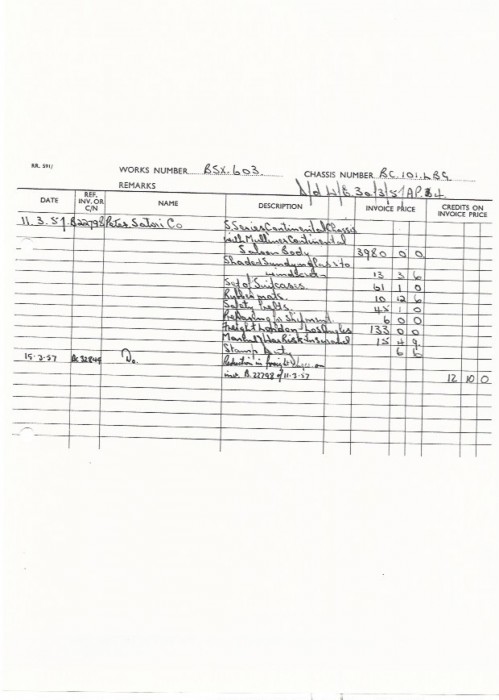 RR. 391/
WORKS NUMBER BSX.603. CHASSIS NUMBER BC.101.LBG.
REMARKS
DATE REF. INV. OR C/N NAME DESCRIPTION INVOICE PRICE CREDITS ON INVOICE PRICE
11.3.57 B22798 Peter Satori Co S.Series Continental Chassis
with Mulliner Continental
Saloon Body 3980 0 0
Shaded Sundym glass to
windscreen 13 3 6
Set of Suitcases 61 1 0
Rubber mats 10 12 6
Safety belts 45 1 0
Preparing for shipment 6 0 0
Freight London - Los Angeles 133 0 0
Marine & War Risk Insurance 15 4 9
Stamp Duty 6 6
15.3.57 Bc 32849 Do. Reduction in on
inv. B.22798 of 11-3-57 12 10 0